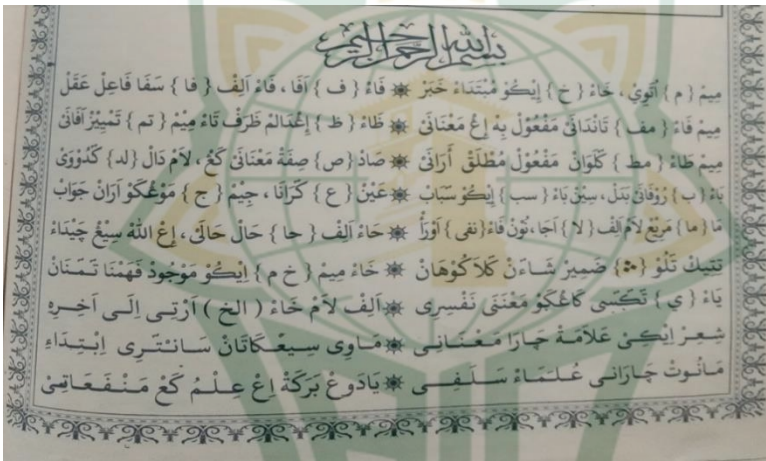 بسم الله الرحمن الرحيم
مِيمْ { م } اُتَوِيْ ، خَاءْ { خ } اِيْكُوْ مُبْتَدَاءْ خَبَرْ ۞ فَاءْ { ف } اَفَا ، فَاءْ اَلِفْ { فا } سَفَا فَاعِلْ عَقَلْ
مِيمْ فَاءْ { مف } تَانْدَانَىْ مَفْعُوْلْ بِهْ اِڠْ مَعْنَانَىْ ۞ ظَاءْ { ظ } اِڠْدَالَمْ ظَرَفْ تَاءْ مِيْمْ { تم } تَمْيِيْزْ اَفَانَىْ
مِيمْ طَاءْ { مط } كَلَوَانْ مَفْعُوْلْ مُطْلَقْ أَرَانَىْ ۞ صَادْ { ص } صِفَةْ مَعْنَانَىْ كَڠْ ، لاَمْ دَالْ { لد } كَدُوْوَىْ
بَاءْ { ب } رُوْفَانَىْ بَدَلْ ، سِيْنْ بَاءْ { سب } اِيْكُوْ سَبَابْ ۞ عَيْنْ { ع } كَرَانَا ، جِيْمْ { ج } مَوْڠْكَوْ اَرَانْ جَوَابْ
مَا { ما } مَرِيْڠْ لاَمْ اَلِفْ { لا } اَجَا ، نُوْنْ فَاءْ { نفى } اَوْرَأْ ۞ حَاءْ اَلِفْ { حا } حَالْ حَالَىْ ، اِڠْ اَللّٰهْ سِيْڠْ چِيْدَاءْ
تِتِيْكْ تَلُوْ { ؞ } ضَمِيْرْ شَاءَنْ كَلاَكُوْهَانْ ۞ خَاءْ مِيمْ { خ م } اِيْكُوْ مَوْجُوْدْ فَهْمْنَا تَمَنَانْ
يَاءْ { ي } تَڮَسَى كَاڠْكَوْ مَعْنَنَى نَفْسِرِى ۞ اَلِفْ لاَمْ خَاءْ ( الخ ) اَرْتِى اِلَى اَخِرِهِ
شِعِرْ اِيْكِىْ عَلاَمَةْ چَارَا مَعْنَانِى ۞ مَاوِى سِيڠْكَاتَانْ سَانْتَرِى اِبْتِدَاءِ
مَانُوتْ چَارَانَى عُلَمَاءْ سَلَفِى ۞ يَادَوڠْ بَرَكَةْ اِڠْ عِلْمُ كَڠْ مَنْفَعَاتِىْ